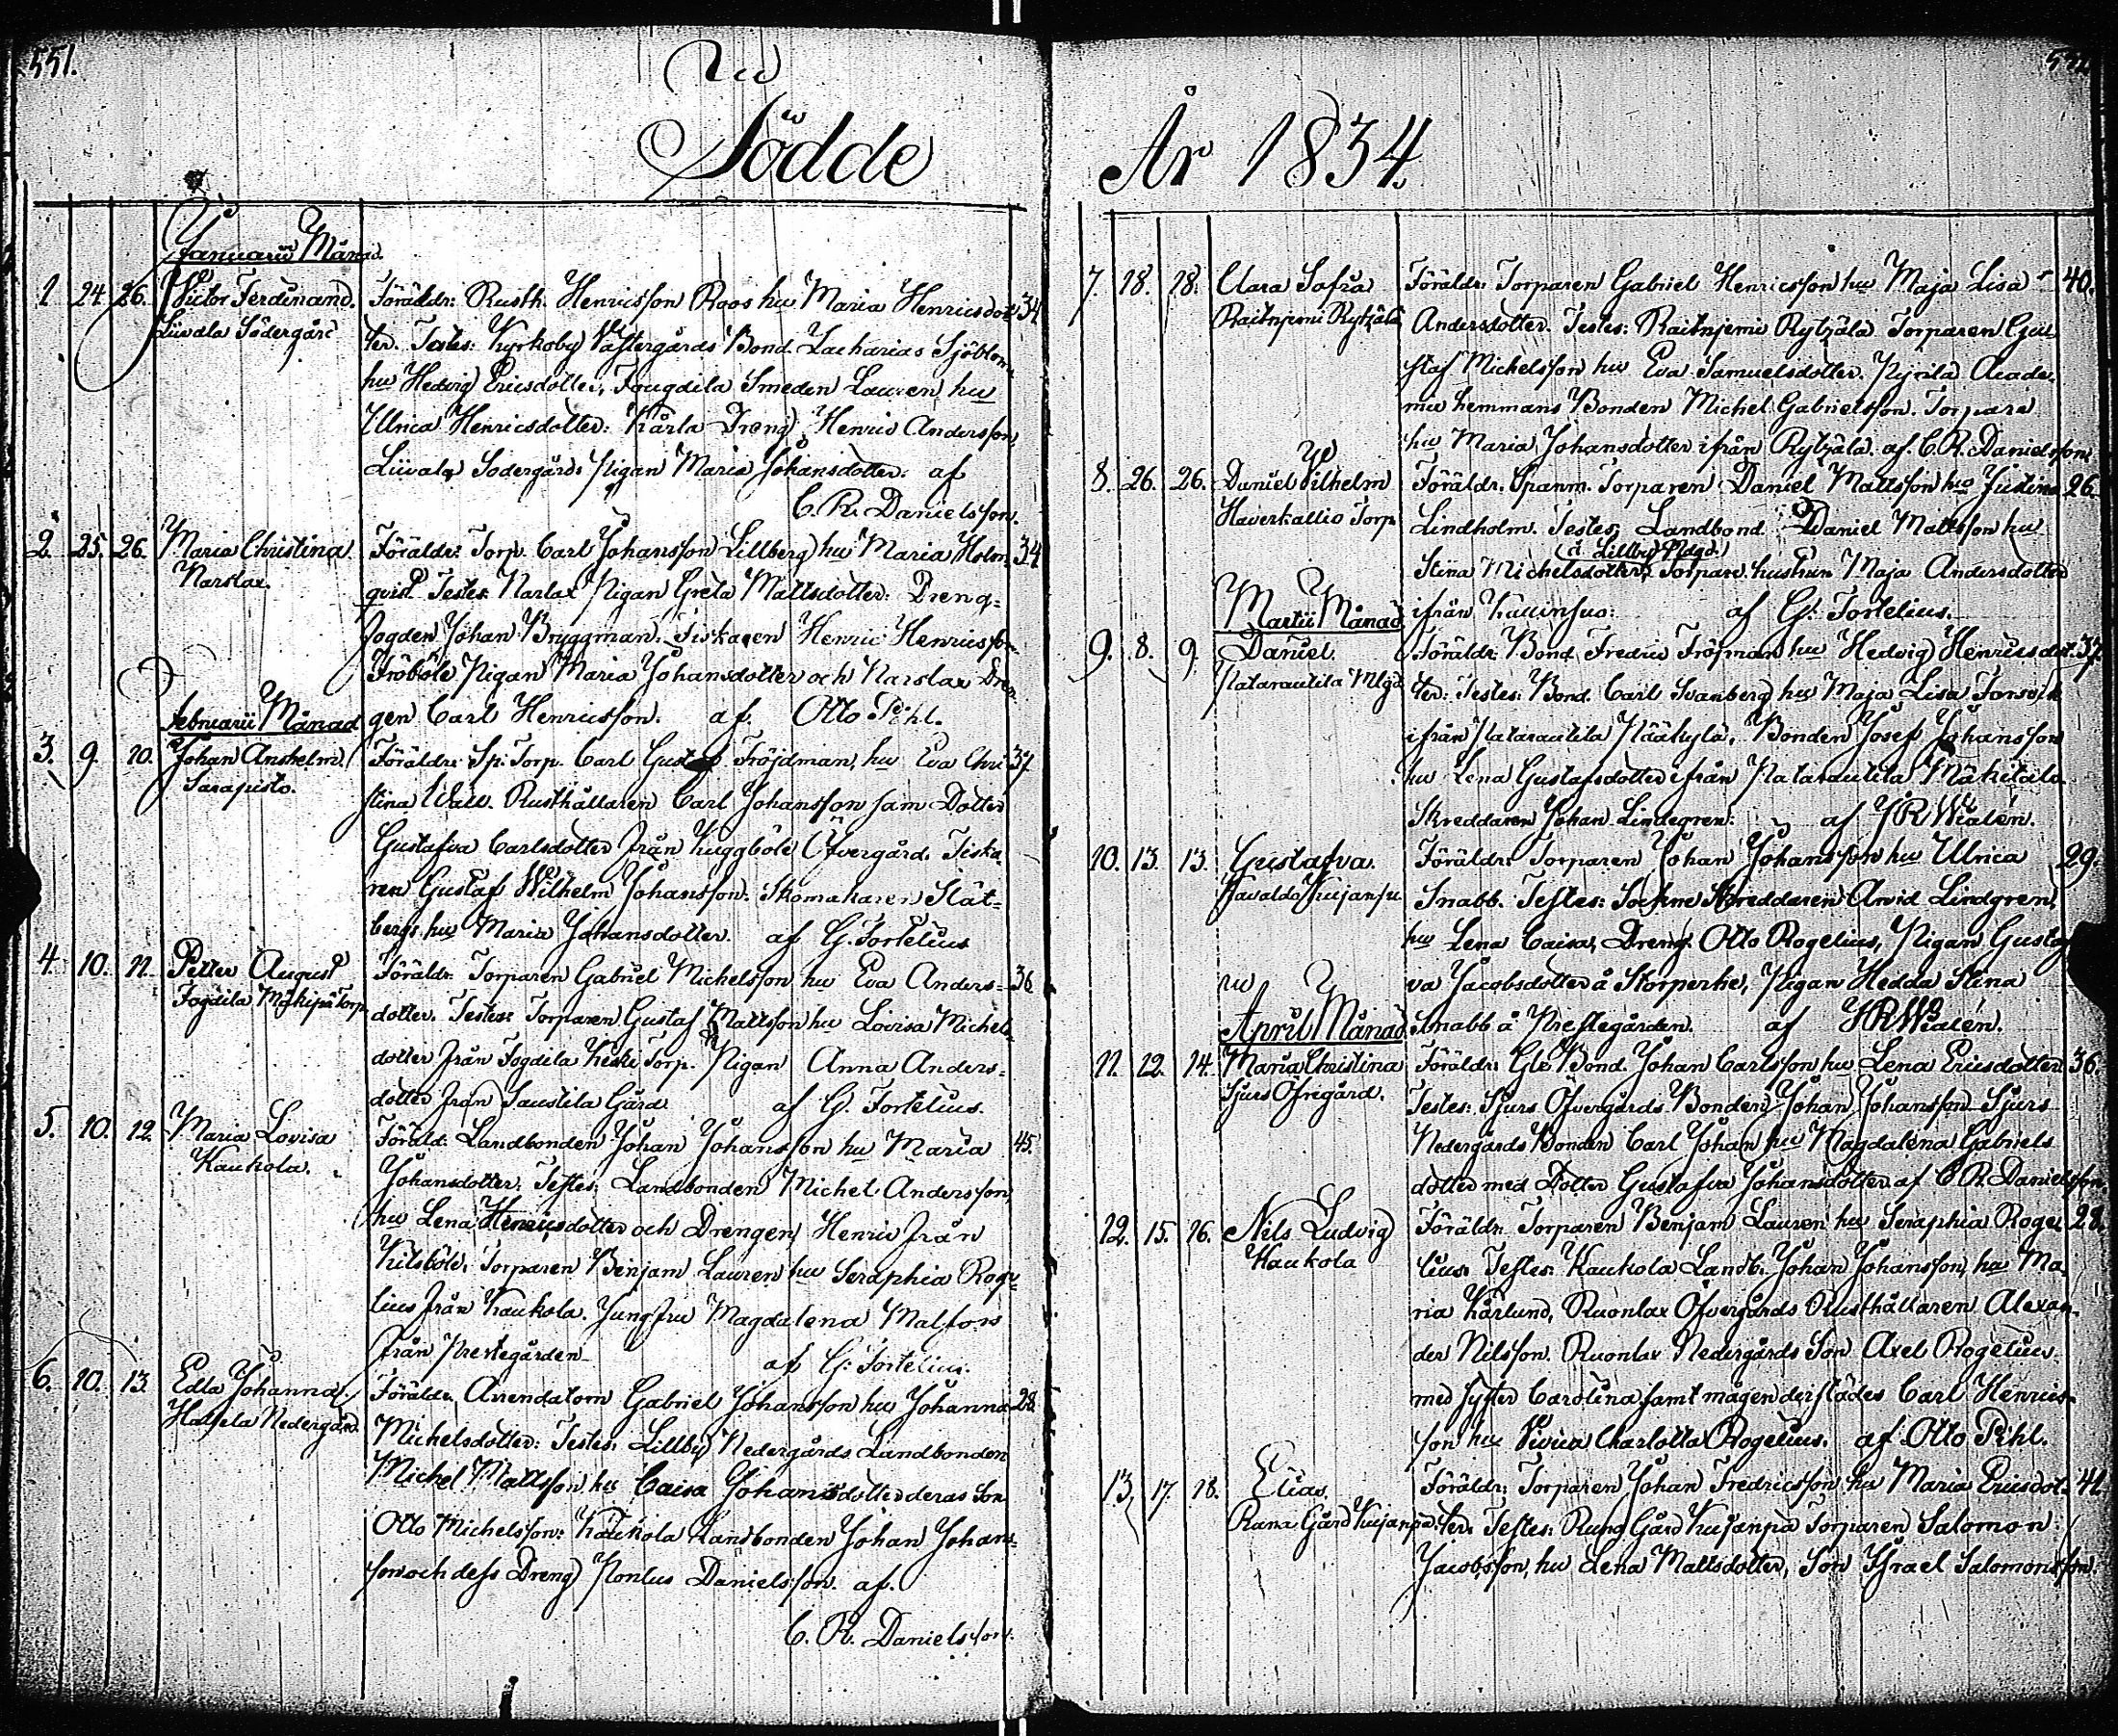 551.
Födde
År 1834.
Januarii Månad.
1 24. 26. Victor Ferdinand. Föräldr: Rusth. Henricsson Roos hu Maria Henricsdot- 34
Liivala Södergård ter. Testes: Kyrkoby Västergårds Bond. Zacharias Sjöblom
hu Hedvig Ericsdotter, Lauren, hu
Ulrica Henricsdotter: Kårla Dreng Henric Andersson,
Liivala Sodergårds Pigan Maria Johansdotter: af
C. R. Danielsson.
2. 25. 26. Maria Christina. Föräldr: Torp. Carl Johansson Lillberg hu Maria Holm- 34
Narslax. qvist Testes Pigan Greta Mattsdotter: Dreng-
fogden Johan Bryggman. Fiskaren Henric Henricsson
Fröböle Pigan Maria Johansdotter och Narslax Dren-
Februarii Månad gen Carl Henricsson. af. Otto Pihl.
3. 9. 10. Johan Anshelm. Föräldr: Sp: Torp. Carl Gustaf Fröjdman, hu Eva Chri- 37
Sarapisto. stina Wall. Rusthållaren Carl Johansson sam Dotter
Gustafva Carlsdotter från Kuggböle Öfvergård. Fiska-
ren Gustaf Wilhelm Johansson. Skomakaren Slät-
bergs hu Maria Johansdotter. af G. Fortelius
4. 10. 11. Petter August Föräldr. Torparen Gabriel Michelsson hu Eva Anders- 36
Fogdila Torp dotter. Testes: Torparen Gustaf Mattsson hu Lovisa Michels-
dotter från Fogdila Keski Torp. Pigan Anna Anders-
dotter från Saustila Gård. af G. Fortelius.
5. 10. 12. Maria Lovisa Föräld. Landbonden Johan Johansson hu Maria 45.
Kaukola. Johansdotter. Testes: Landbonden Michel Andersson,
hu Lena Henricsdotter och Drengen Henric från
Kilsböle, Torparen Benjam Lauren hu Seraphia Roge-
lius från Kaukola. Jungfru Magdalena Malfors
från Prestegården af G: Fortelius.
6. 10. 13. Edla Johanna. Föräldr. Arrendatorn Gabriel Johansson hu Johanna 28.
Nedergård. Michelsdotter: Testes: Lillby Nedergårds Landbonden
Michel Mattsson, hu Caisa Johansdotter deras Son
Otto Michelsson: Kaukola Landbonden Johan Johans-
son och dess Dreng Pontus Danielsson. af.
C. R. Danielsson.
7. 18. 18. Clara Sofia Föräldr. Torparen Gabriel Henricsson hu Maja Lisa 40.
Raitnjemi Rytzälä Andersdotter. Testes: Raitnjemi Rytzälä Torparen Gu-
staf Michelsson hu Eva Samuelsdotter. Acade-
mie hemmans Bonden Michel Gabrielsson. Torpare
hu Maria Johansdotter ifrån Rytzälä. af. C. R. Danielsson.
8. 26. 26. Daniel Vilhelm Föräldr. Spanm. Torparen Daniel Mattsson hu Justina 26.
Haverkallio Torp Lindholm. Testes: Landbond Daniel Mattsson hu
Stina Michelsdotter (i Lillby Ndgd.) Torpare hustrun Maja Andersdotter
ifrån af G: Fortelius.
Martii Månad
9. 8. 9. Daniel. Föräldr: Bond. Fredric Fröjman hu Hedvig Henricsdot- 37.
Natarautila ter: Testes: Bond. Carl Svanberg hu Maja Lisa
ifrån Natarautila Pääkylä, Bonden Josef Johansson
hu Lena Gustafsdotter ifrån Natarautila Mäkitalo
Skreddaren Johan Lindegren: af J R Wialén.
10. 13. 13. Gustafva. Föräldr. Torparen Johan Johansson hu Ulrica 29.
Snabb. Testes: Sockne Skreddaren Arvid Lindgren,
hu Lena Caisa, Dreng. Otto Rogelius, Pigan Gustaf-
va Jacobsdotter å Storperhe, Pigan Hedda Stina
April Månad. Snabb å Prestegården. af J R Wialén.
11. 12. 14. Maria Christina Föräldr: Gle Bond. Johan Carlsson hu Lena Ericsdotter 36.
Sjurs Öfregård. Testes: Sjurs Öfvergårds Bonden Johan Johansson Sjurs
Nedergards Bonden Carl Johan hu Magdalena Gabriels
dotter med Dotter Gustafva Johansdotter af C. R. Danielsson.
12. 15. 16. Nils Ludvig Föräldr. Torparen Benjam Lauren hu Seraphia Roge- 28.
Kaukola lius. Testes: Kaukola Landb. Johan Johansson, hu Ma-
ria Kårlund, Ruonlax Öfvergårds Rusthållaren Alexan-
der Nilsson. Ruonlax Nedergårds Son Axel Rogelius
med syster Carolina samt mågen derstädes Carl Henrics-
son hu Vivica Charlotta Rogelius. af Otto Pihl.
13. 17. 18. Elias. Föräldr: Torparen Johan Fredricsson hu Maria Ericsdot- 41.
Runa Gård Kujanpä. ter. Testes: Runa Gård Kujanpä Torparen Salomon
Jacobsson, hu Lena Mattsdotter, Son Israel Salomonsson.